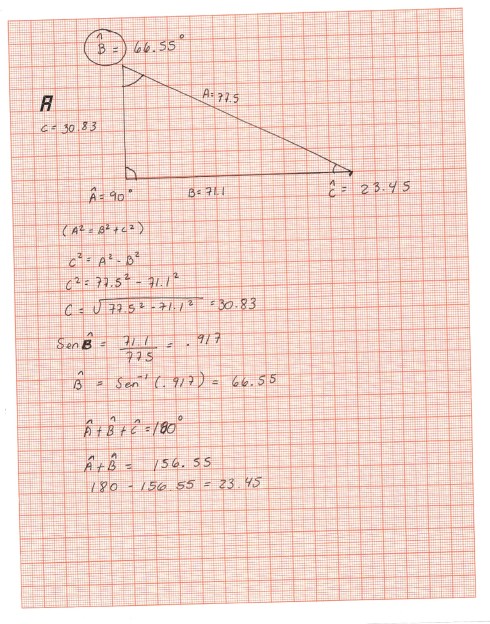 B̂ = 66.55°
A = 77.5
A
C = 30.83
Â = 90°
B = 71.1
Ĉ = 23.45
(A² = B² + C²)
C² = A² - B²
C² = 77.5² - 71.1²
C = √77.5² - 71.1² = 30.83
Sen B̂ = 71.1 / 77.5 = .917
B̂ = Sen⁻¹ (.917) = 66.55
Â + B̂ + Ĉ = 180°
Â + B̂ = 156.55
180 - 156.55 = 23.45